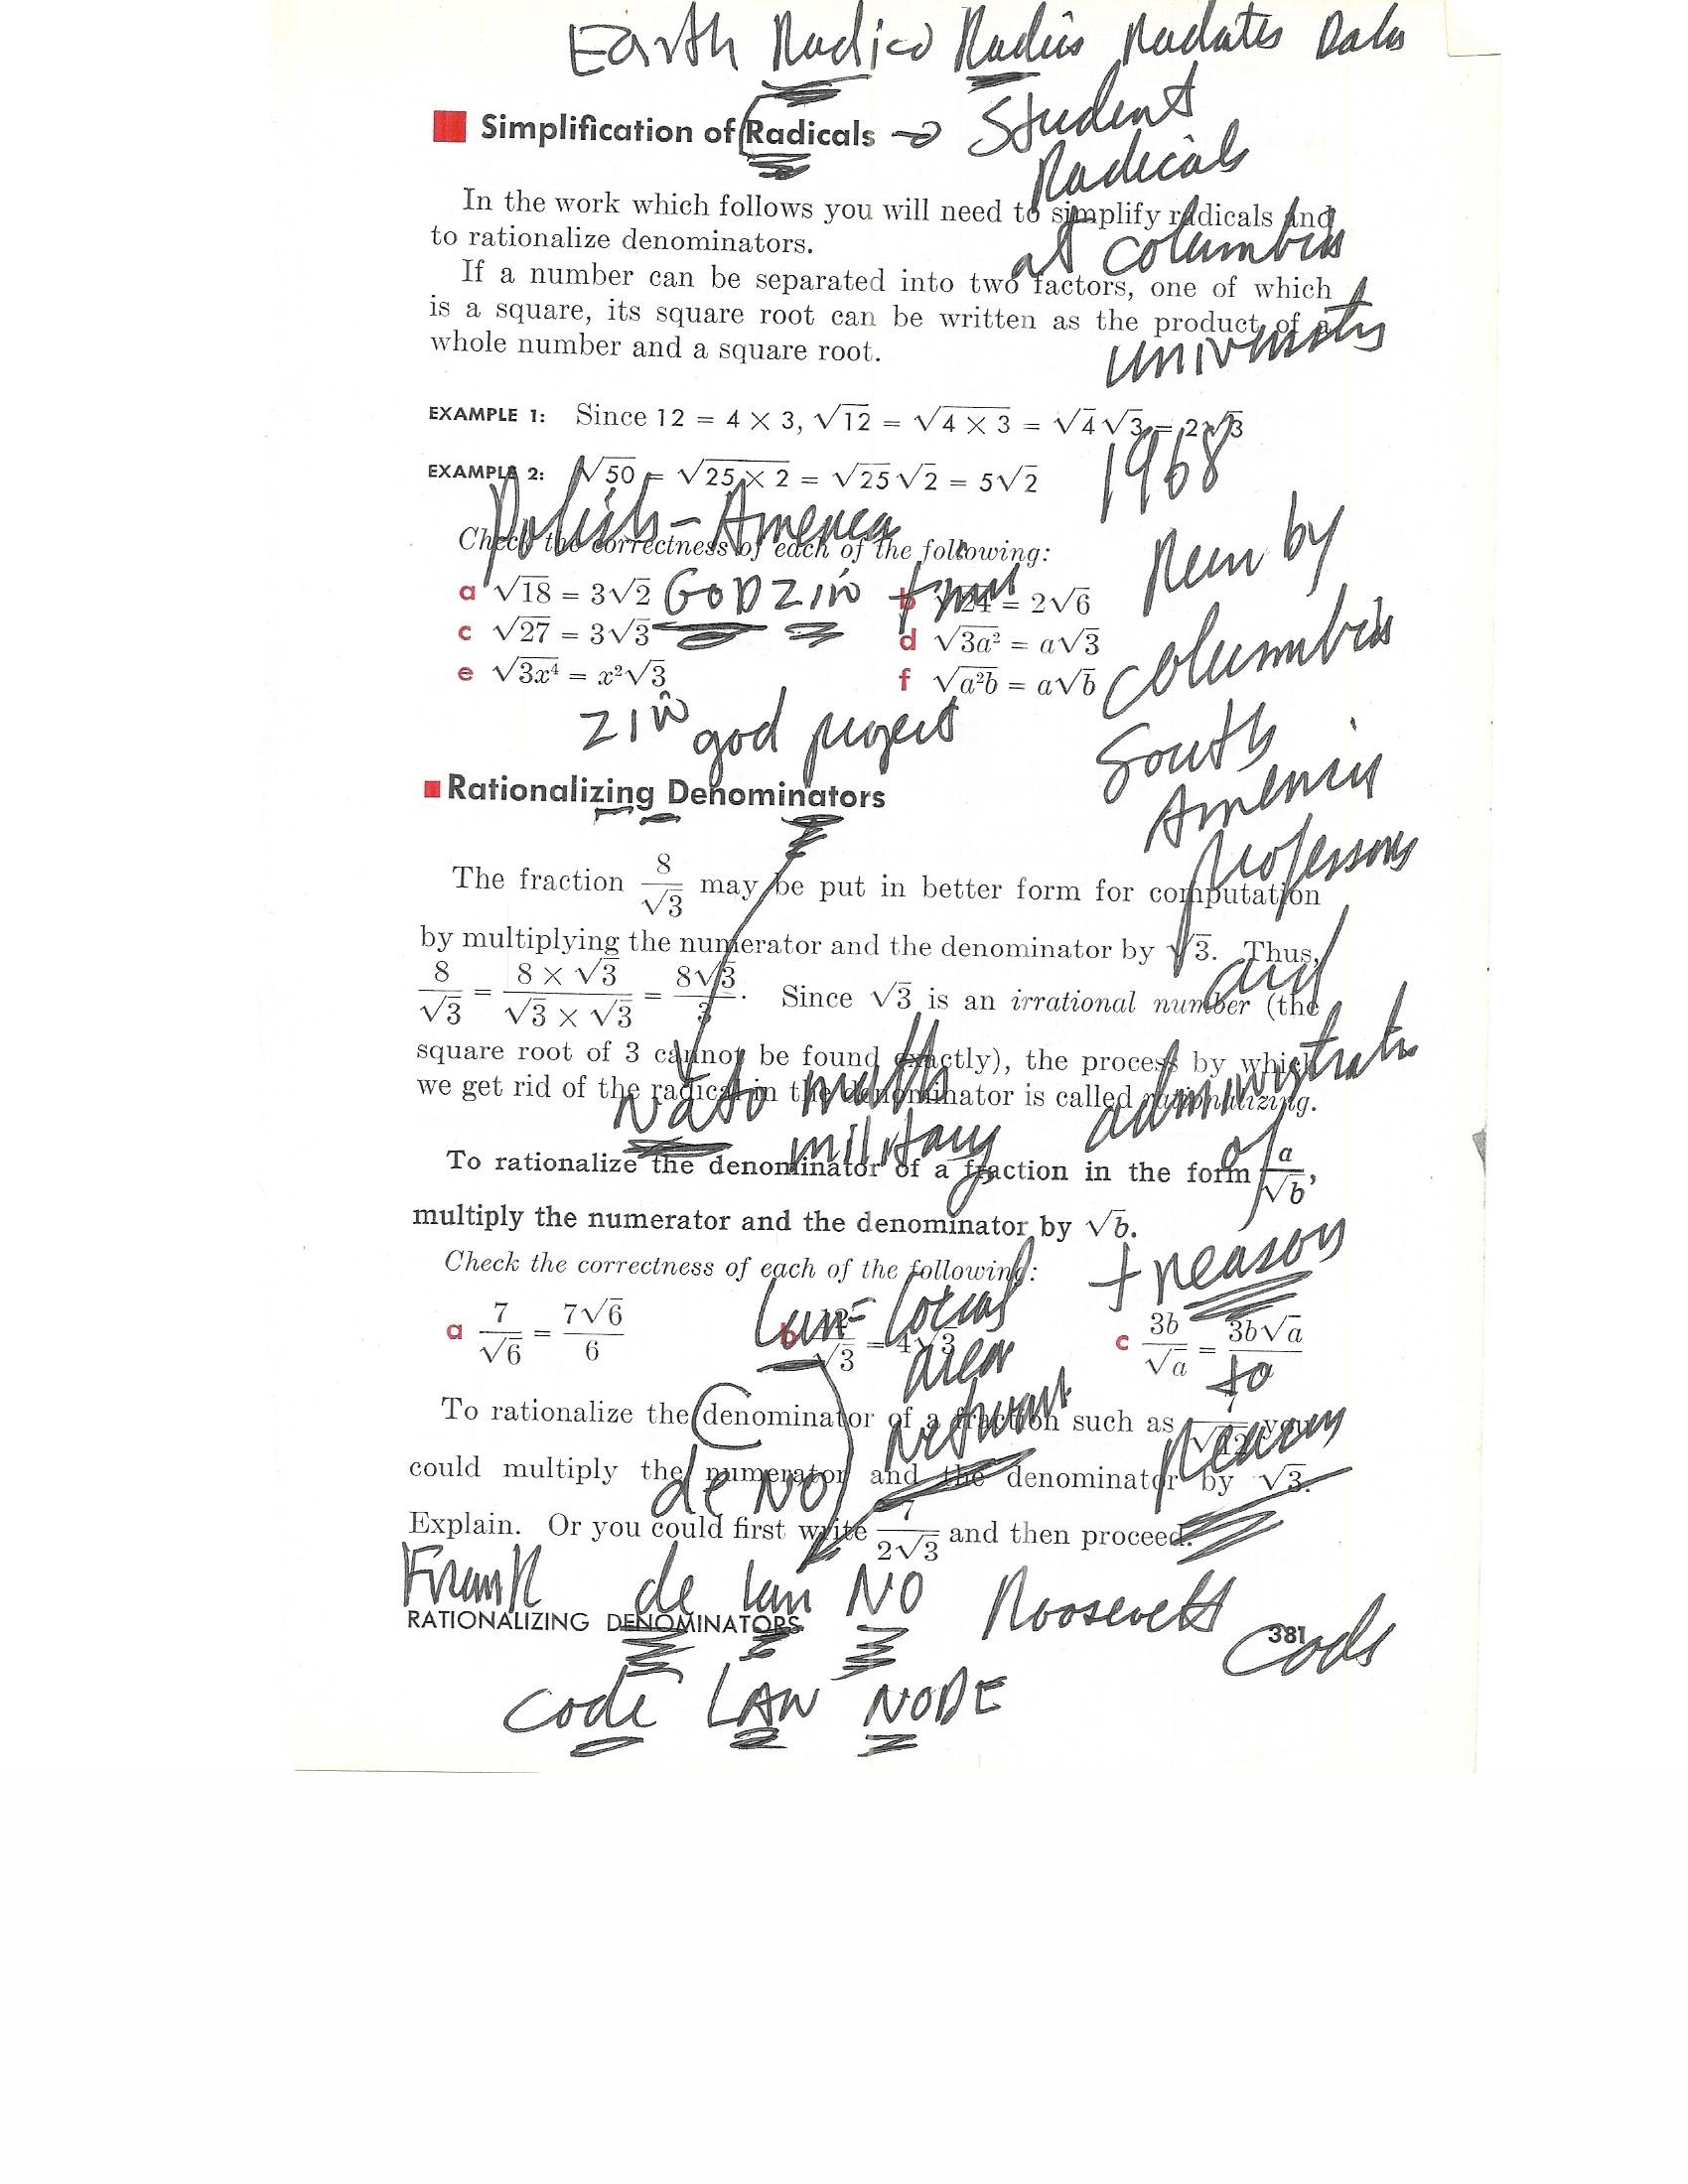 Earth Radico Radius Radiates Data
Simplification of Radicals → Student
Radicals
In the work which follows you will need to simplify radicals and
at Columbia
to rationalize denominators.
If a number can be separated into two factors, one of which
is a square, its square root can be written as the product of a
University
whole number and a square root.
EXAMPLE 1: Since 12 = 4 × 3, √12 = √4 × 3 = √4 √3 = 2√3
1968
EXAMPLE 2: √50 = √25 × 2 = √25 √2 = 5√2
Polish-America
by
Check the correctness of each of the following:
a √18 = 3√2 GOD ZIN b √24 = 2√6
c √27 = 3√3 d √3a² = a√3
Columbia
e √3x⁴ = x²√3 f √a²b = a√b
ZIN god project
South
America
Rationalizing Denominators
professors
The fraction 8/√3 may be put in better form for computation
by multiplying the numerator and the denominator by √3. Thus,
and
8/√3 = 8 × √3/√3 × √3 = 8√3/3. Since √3 is an irrational number (the
square root of 3 cannot be found exactly), the process by which
we get rid of the radical in the denominator is called rationalizing.
Nato math
military
of
To rationalize the denominator of a fraction in the form a/√b,
multiply the numerator and the denominator by √b.
Check the correctness of each of the following:
treason
Lan = local
a 7/√6 = 7√6/6 b 12/√3 = 4√3 c 3b/√a = 3b√a/a
area
to
network
To rationalize the denominator of a fraction such as 7/√12 you
Reason
could multiply the numerator and the denominator by √3.
de NO
Explain. Or you could first write 7/2√3 and then proceed.
Frank de lan NO Roosevelt
RATIONALIZING DENOMINATORS 381
Code LAW NODE